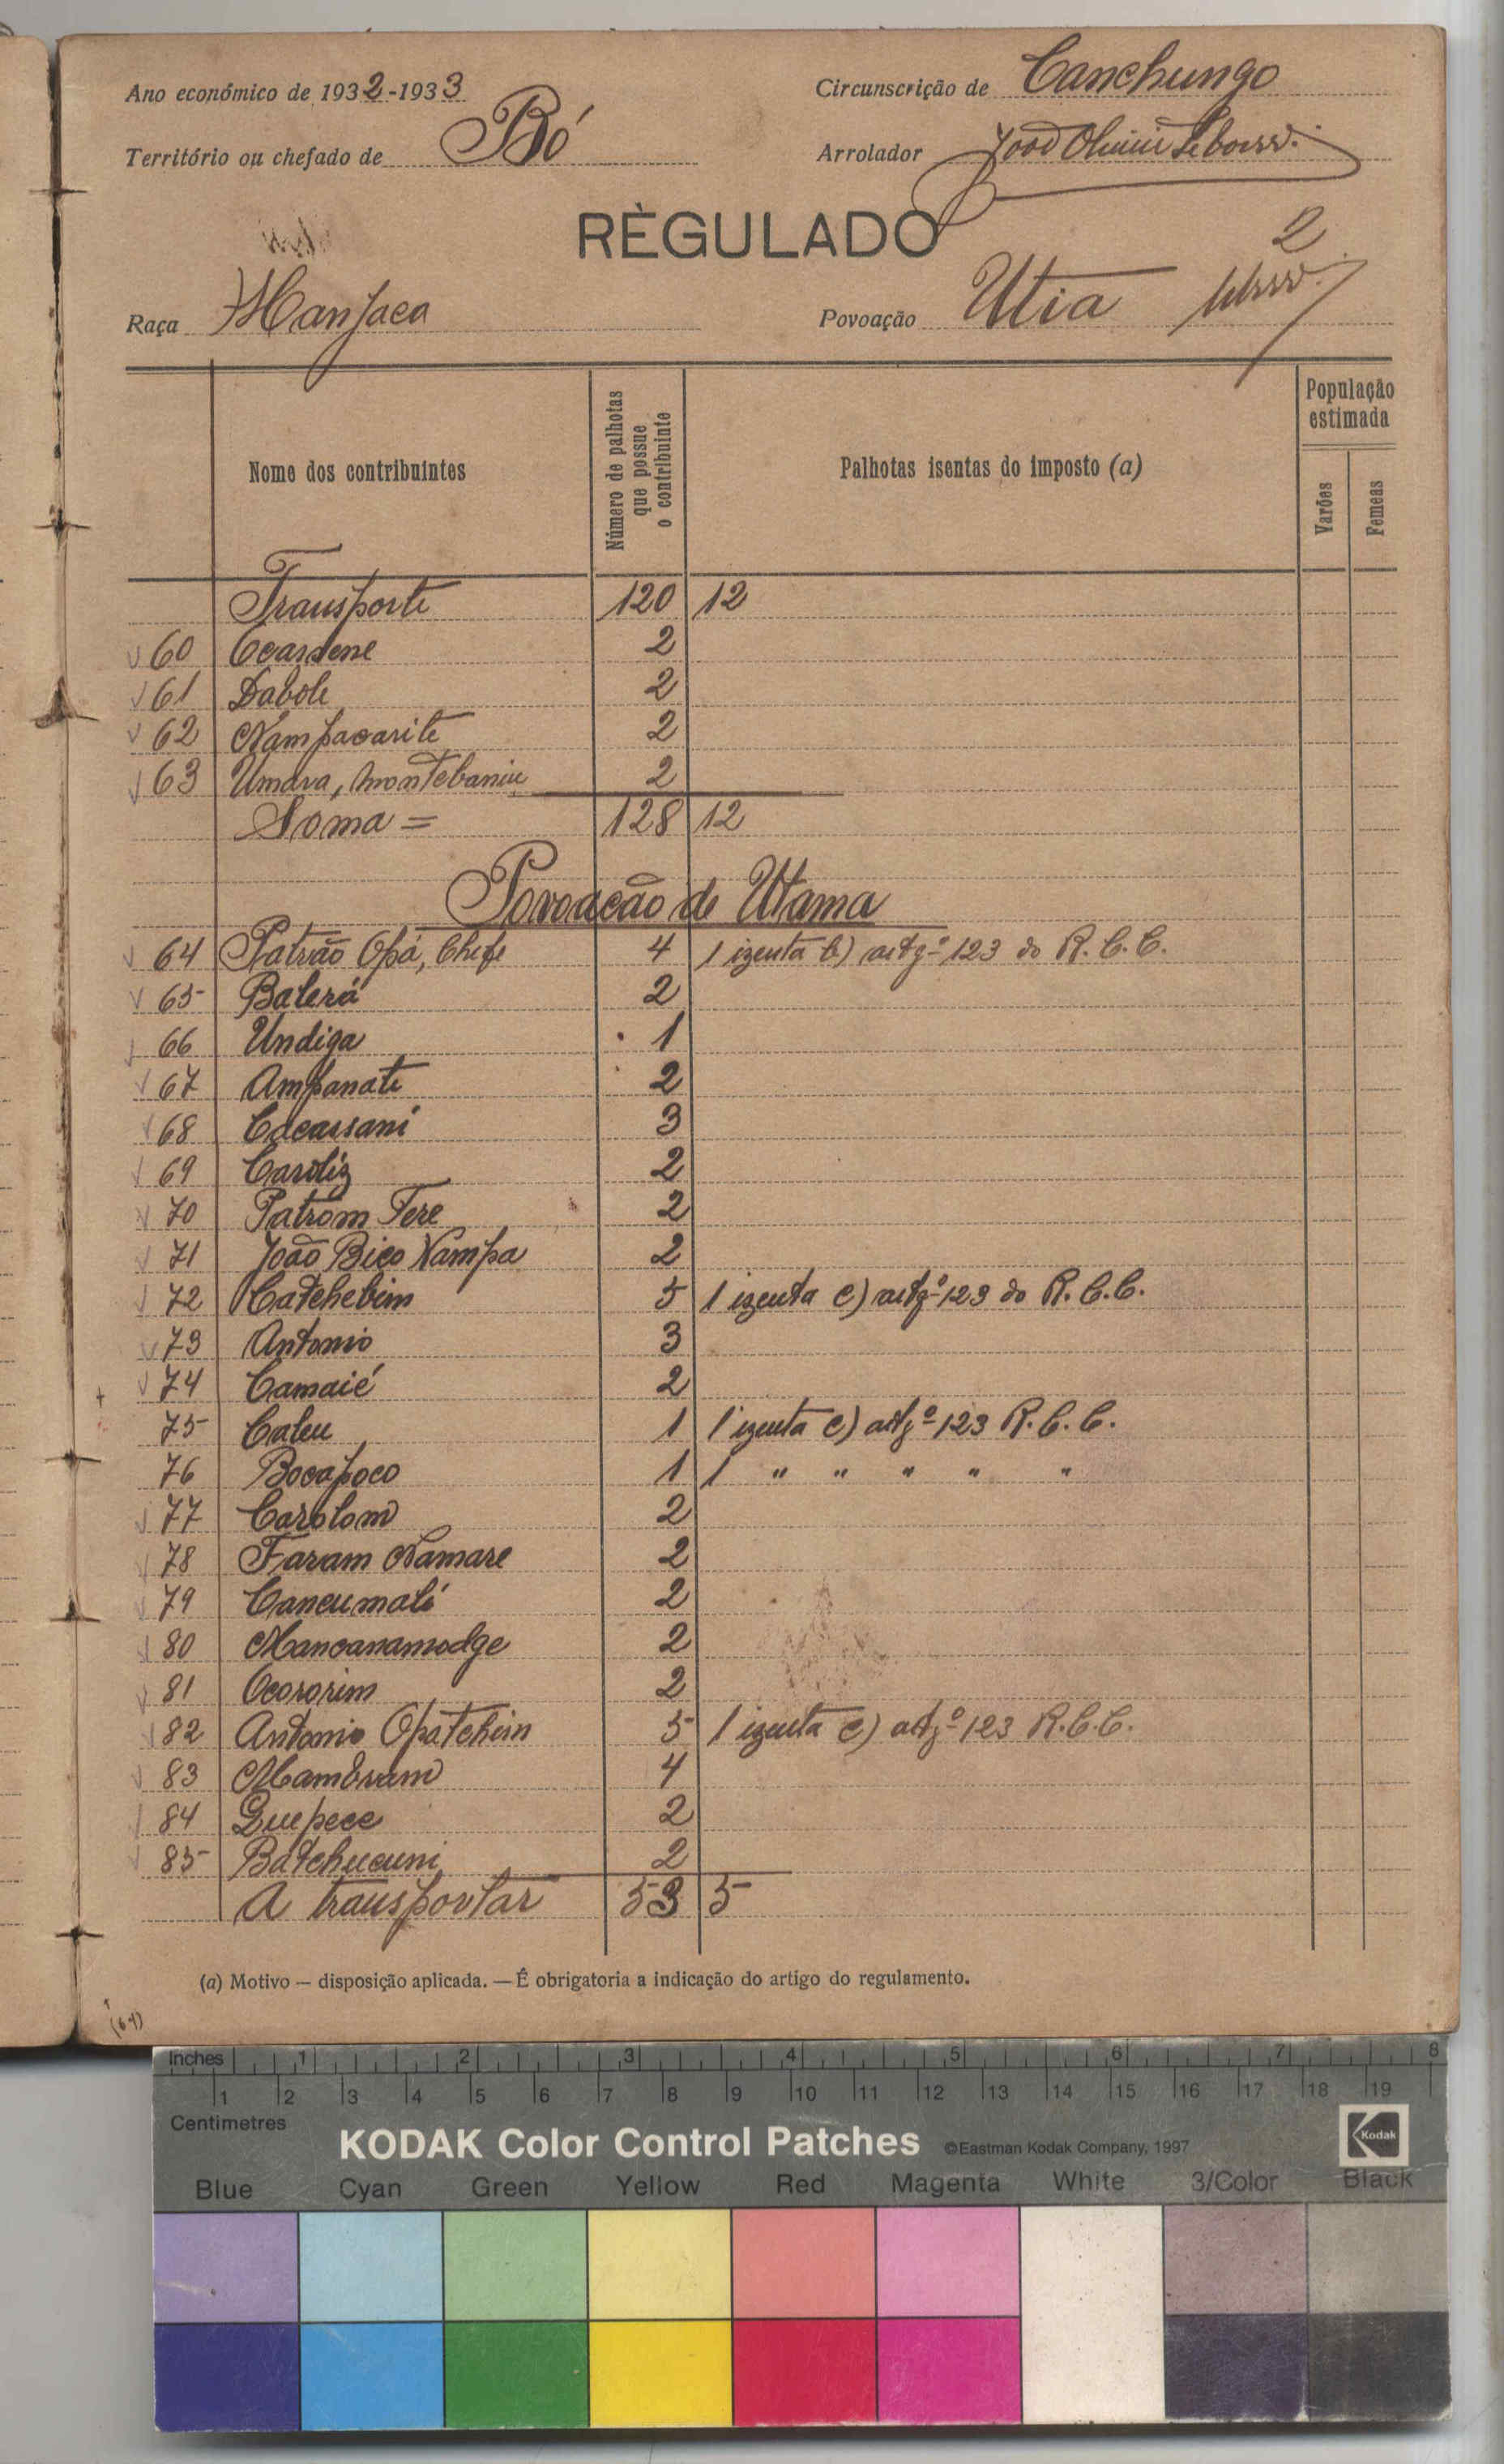 Ano económico de 1932-1933
Circunscrição de Canchungo
Território ou chefado de Bó
Arrolador João
RÈGULADO
2
Raça Manjaca
Povoação Utia
Nome dos contribuintes
Número de palhotas que possue o contribuinte
Palhotas isentas do imposto (a)
População estimada
Varões
Femeas
Transporte 120 12
60 2
61 Dabole 2
62 Nampacarite 2
63 Umdra, montebaniu 2
Soma = 128 12
Povoacão de Utama
64 Patrão Opá, Chefe 4 1 izenta b) artgº 123 do R. C. C.
65 Balerá 2
66 Undiga 1
67 Ampanate 2
68 Cacassani 3
69 Caroliz 2
70 Patrom Tere 2
71 João Bico Nampa 2
72 Catchebim 5 1 izenta c) artgº 123 do R. C. C.
73 Antonio 3
74 Camaié 2
75 Caleu 1 1 izenta c) artgº 123 R. C. C.
76 Bocapoco 1 1 " " " " "
77 Carolom 2
78 Faram Namare 2
79 Cancumalé 2
80 Mancanamodge 2
81 Ocororim 2
82 Antonio Opatchim 5 1 izenta c) artgº 123 R. C. C.
83 Mambram 4
84 Quepece 2
85 Batchucuni 2
A transportar 53 5
(a) Motivo — disposição aplicada. — É obrigatoria a indicação do artigo do regulamento.
(64)
Inches 1 2 3 4 5 6 7 8
1 2 3 4 5 6 7 8 9 10 11 12 13 14 15 16 17 18 19
Centimetres
KODAK Color Control Patches ©Eastman Kodak Company, 1997 Kodak
Blue Cyan Green Yellow Red Magenta White 3/Color Black